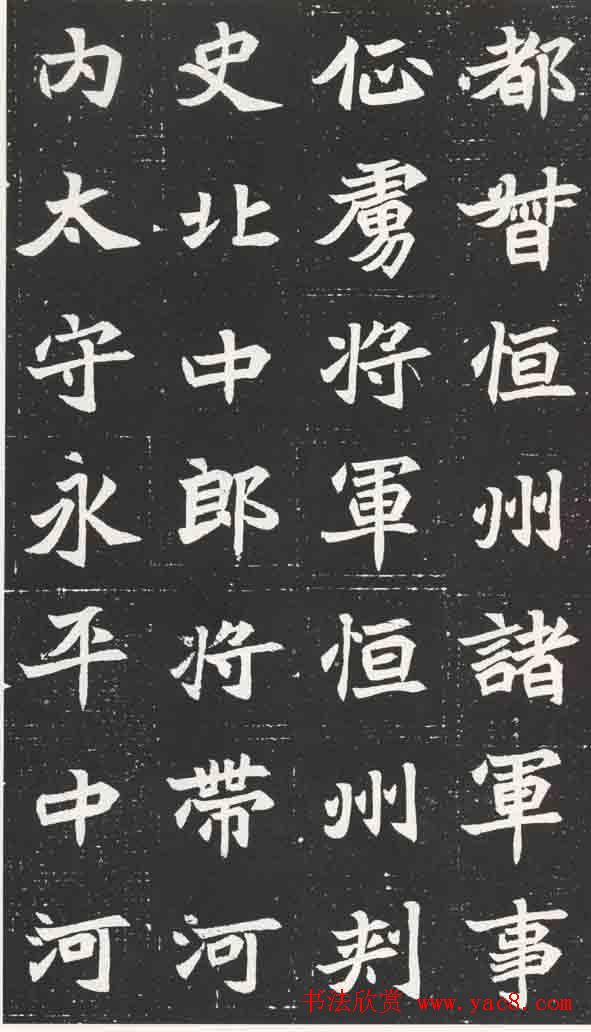 都督恒州諸軍事
征虜将軍恒州刾
史北中郎将帶河
内太守永平中河
书法欣赏 www.yac8.com